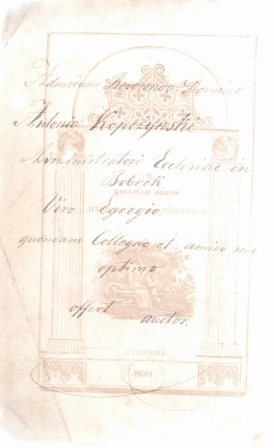 Admodum Reverendo Domino
Antonio Kopczyński
Administratori Ecclesiae in
Bobrek
Viro Egregio
quondam Collegae et amico suo
optimo
offert auctor.